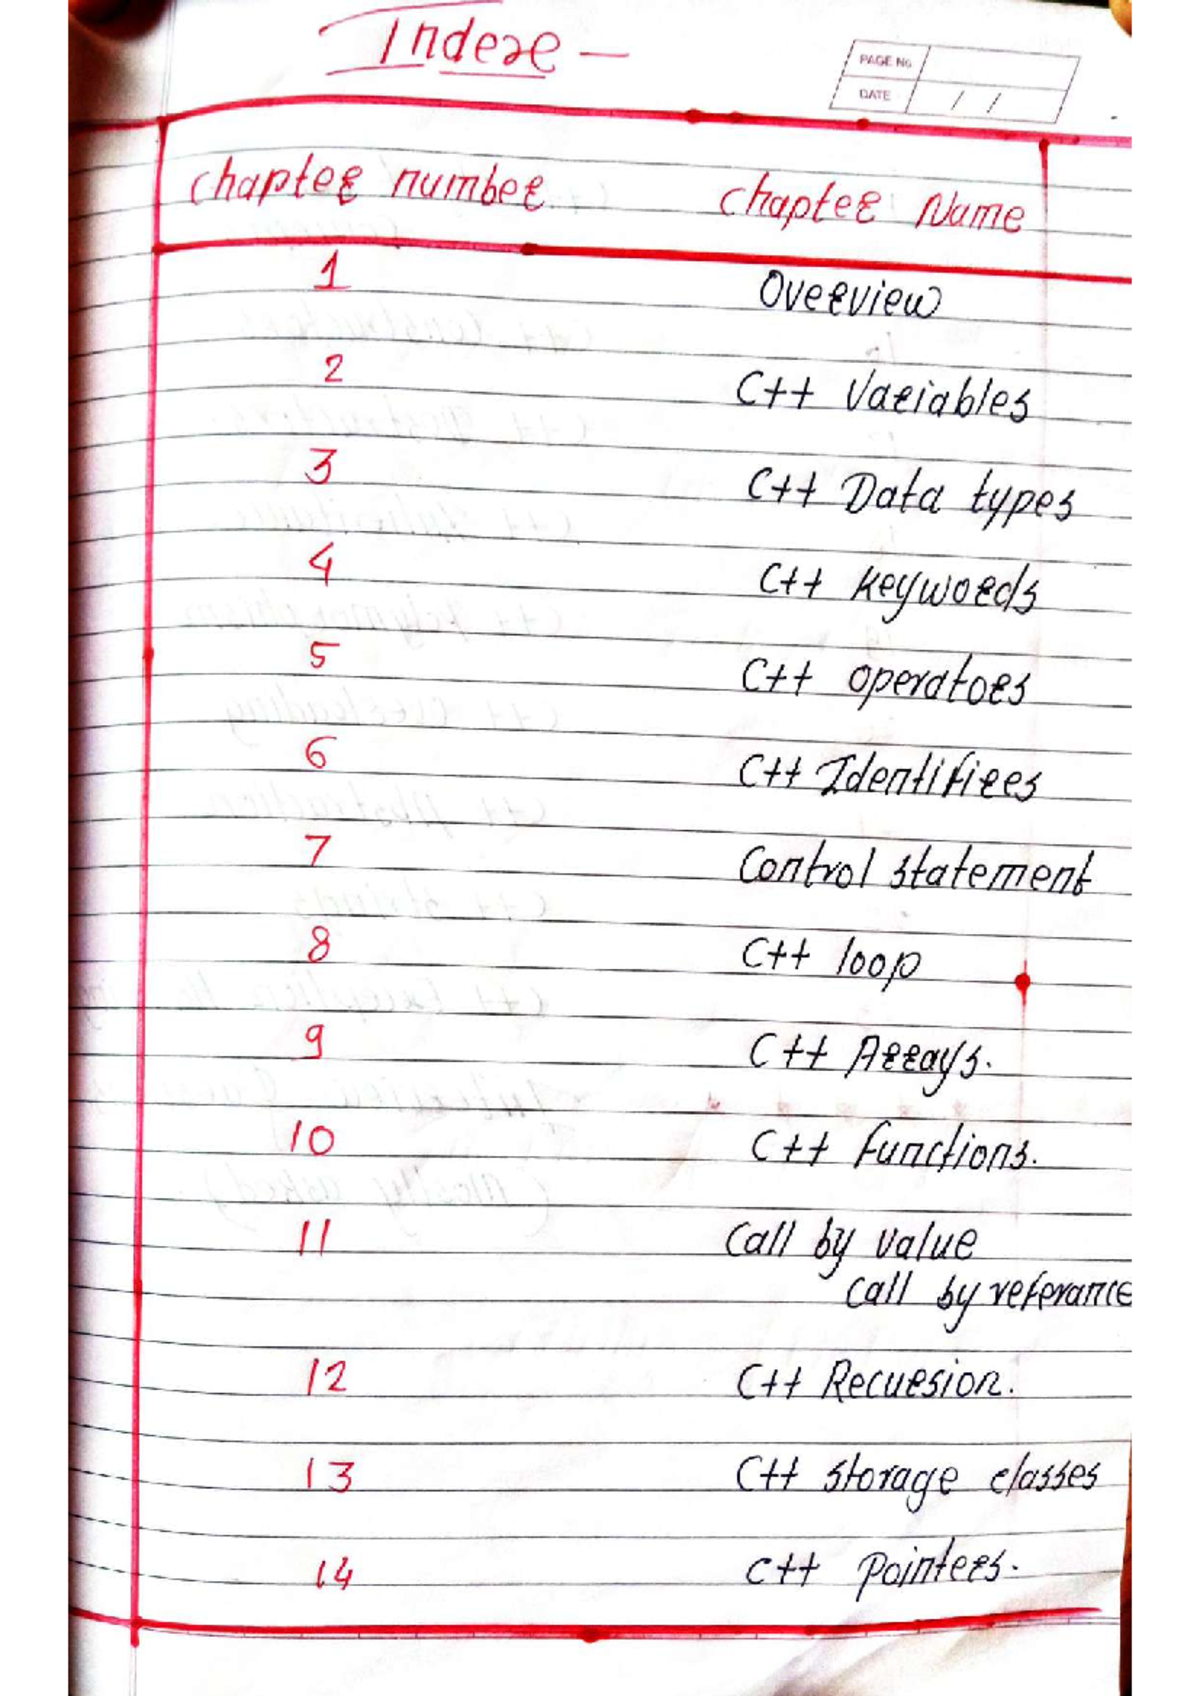 Index —
PAGE No
DATE / /
Chapter number Chapter Name
1 Overview
2 C++ Variables
3 C++ Data types
4 C++ keywords
5 C++ operators
6 C++ Identifires
7 Control statement
8 C++ loop
9 C++ Arrays.
10 C++ functions.
11 Call by value
Call by referance
12 C++ Recursion.
13 C++ storage classes
14 C++ pointers.